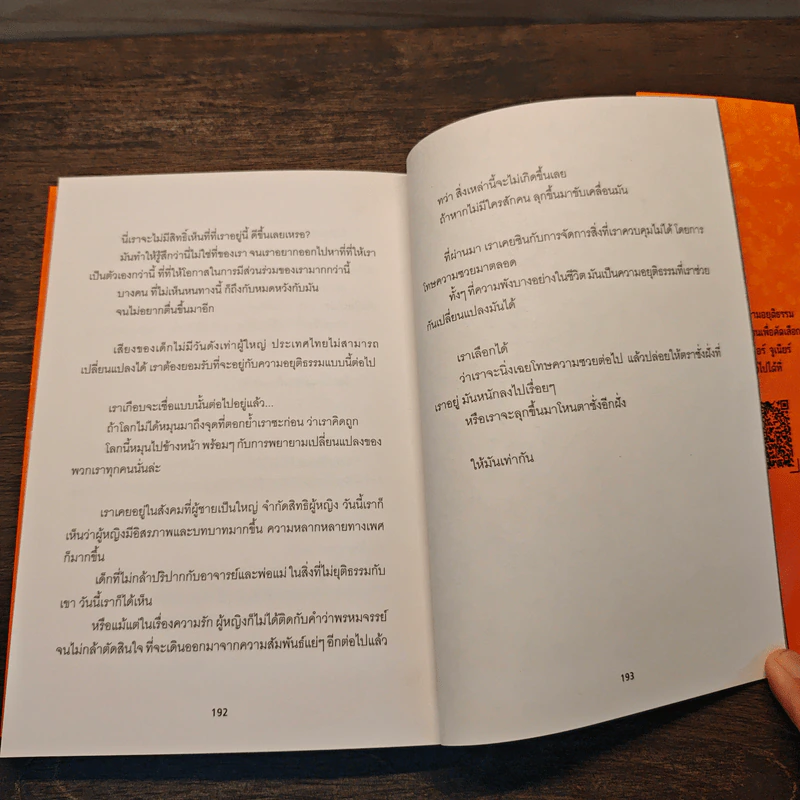 นี่เราจะไม่มีสิทธิ์เห็นที่ที่เราอยู่นี้ ดีขึ้นเลยเหรอ?
มันทำให้รู้สึกว่านี่ไม่ใช่ที่ของเรา จนเราอยากออกไปหาที่ที่ให้เรา
เป็นตัวเองกว่านี้ ที่ที่ให้โอกาสในการมีส่วนร่วมของเรามากกว่านี้
บางคน ที่ไม่เห็นหนทางนี้ ก็ถึงกับหมดหวังกับมัน
จนไม่อยากตื่นขึ้นมาอีก
เสียงของเด็กไม่มีวันดังเท่าผู้ใหญ่ ประเทศไทยไม่สามารถ
เปลี่ยนแปลงได้ เราต้องยอมรับที่จะอยู่กับความอยุติธรรมแบบนี้ต่อไป
เราเกือบจะเชื่อแบบนั้นต่อไปอยู่แล้ว...
ถ้าโลกไม่ได้หมุนมาถึงจุดที่ตอกย้ำเราซะก่อน ว่าเราคิดถูก
โลกนี้หมุนไปข้างหน้า พร้อมๆ กับการพยายามเปลี่ยนแปลงของ
พวกเราทุกคนนั่นล่ะ
เราเคยอยู่ในสังคมที่ผู้ชายเป็นใหญ่ จำกัดสิทธิผู้หญิง วันนี้เราก็
เห็นว่าผู้หญิงมีอิสรภาพและบทบาทมากขึ้น ความหลากหลายทางเพศ
ก็มากขึ้น
เด็กที่ไม่กล้าปริปากกับอาจารย์และพ่อแม่ ในสิ่งที่ไม่ยุติธรรมกับ
เขา วันนี้เราก็ได้เห็น
หรือแม้แต่ในเรื่องความรัก ผู้หญิงก็ไม่ได้ติดกับคำว่าพรหมจรรย์
จนไม่กล้าตัดสินใจ ที่จะเดินออกมาจากความสัมพันธ์แย่ๆ อีกต่อไปแล้ว
192
ทว่า สิ่งเหล่านี้จะไม่เกิดขึ้นเลย
ถ้าหากไม่มีใครสักคน ลุกขึ้นมาขับเคลื่อนมัน
ที่ผ่านมา เราเคยชินกับการจัดการสิ่งที่เราควบคุมไม่ได้ โดยการ
โทษความซวยมาตลอด
ทั้งๆ ที่ความพังบางอย่างในชีวิต มันเป็นความอยุติธรรมที่เราช่วย
กันเปลี่ยนแปลงมันได้
เราเลือกได้
ว่าเราจะนิ่งเฉยโทษความซวยต่อไป แล้วปล่อยให้ตราชั่งฝั่งที่
เราอยู่ มันหนักลงไปเรื่อยๆ
หรือเราจะลุกขึ้นมาโหนตาชั่งอีกฝั่ง
ให้มันเท่ากัน
193
ามอยุติธรรม
นเพื่อคัดเลือก
อร์ จูเนียร์